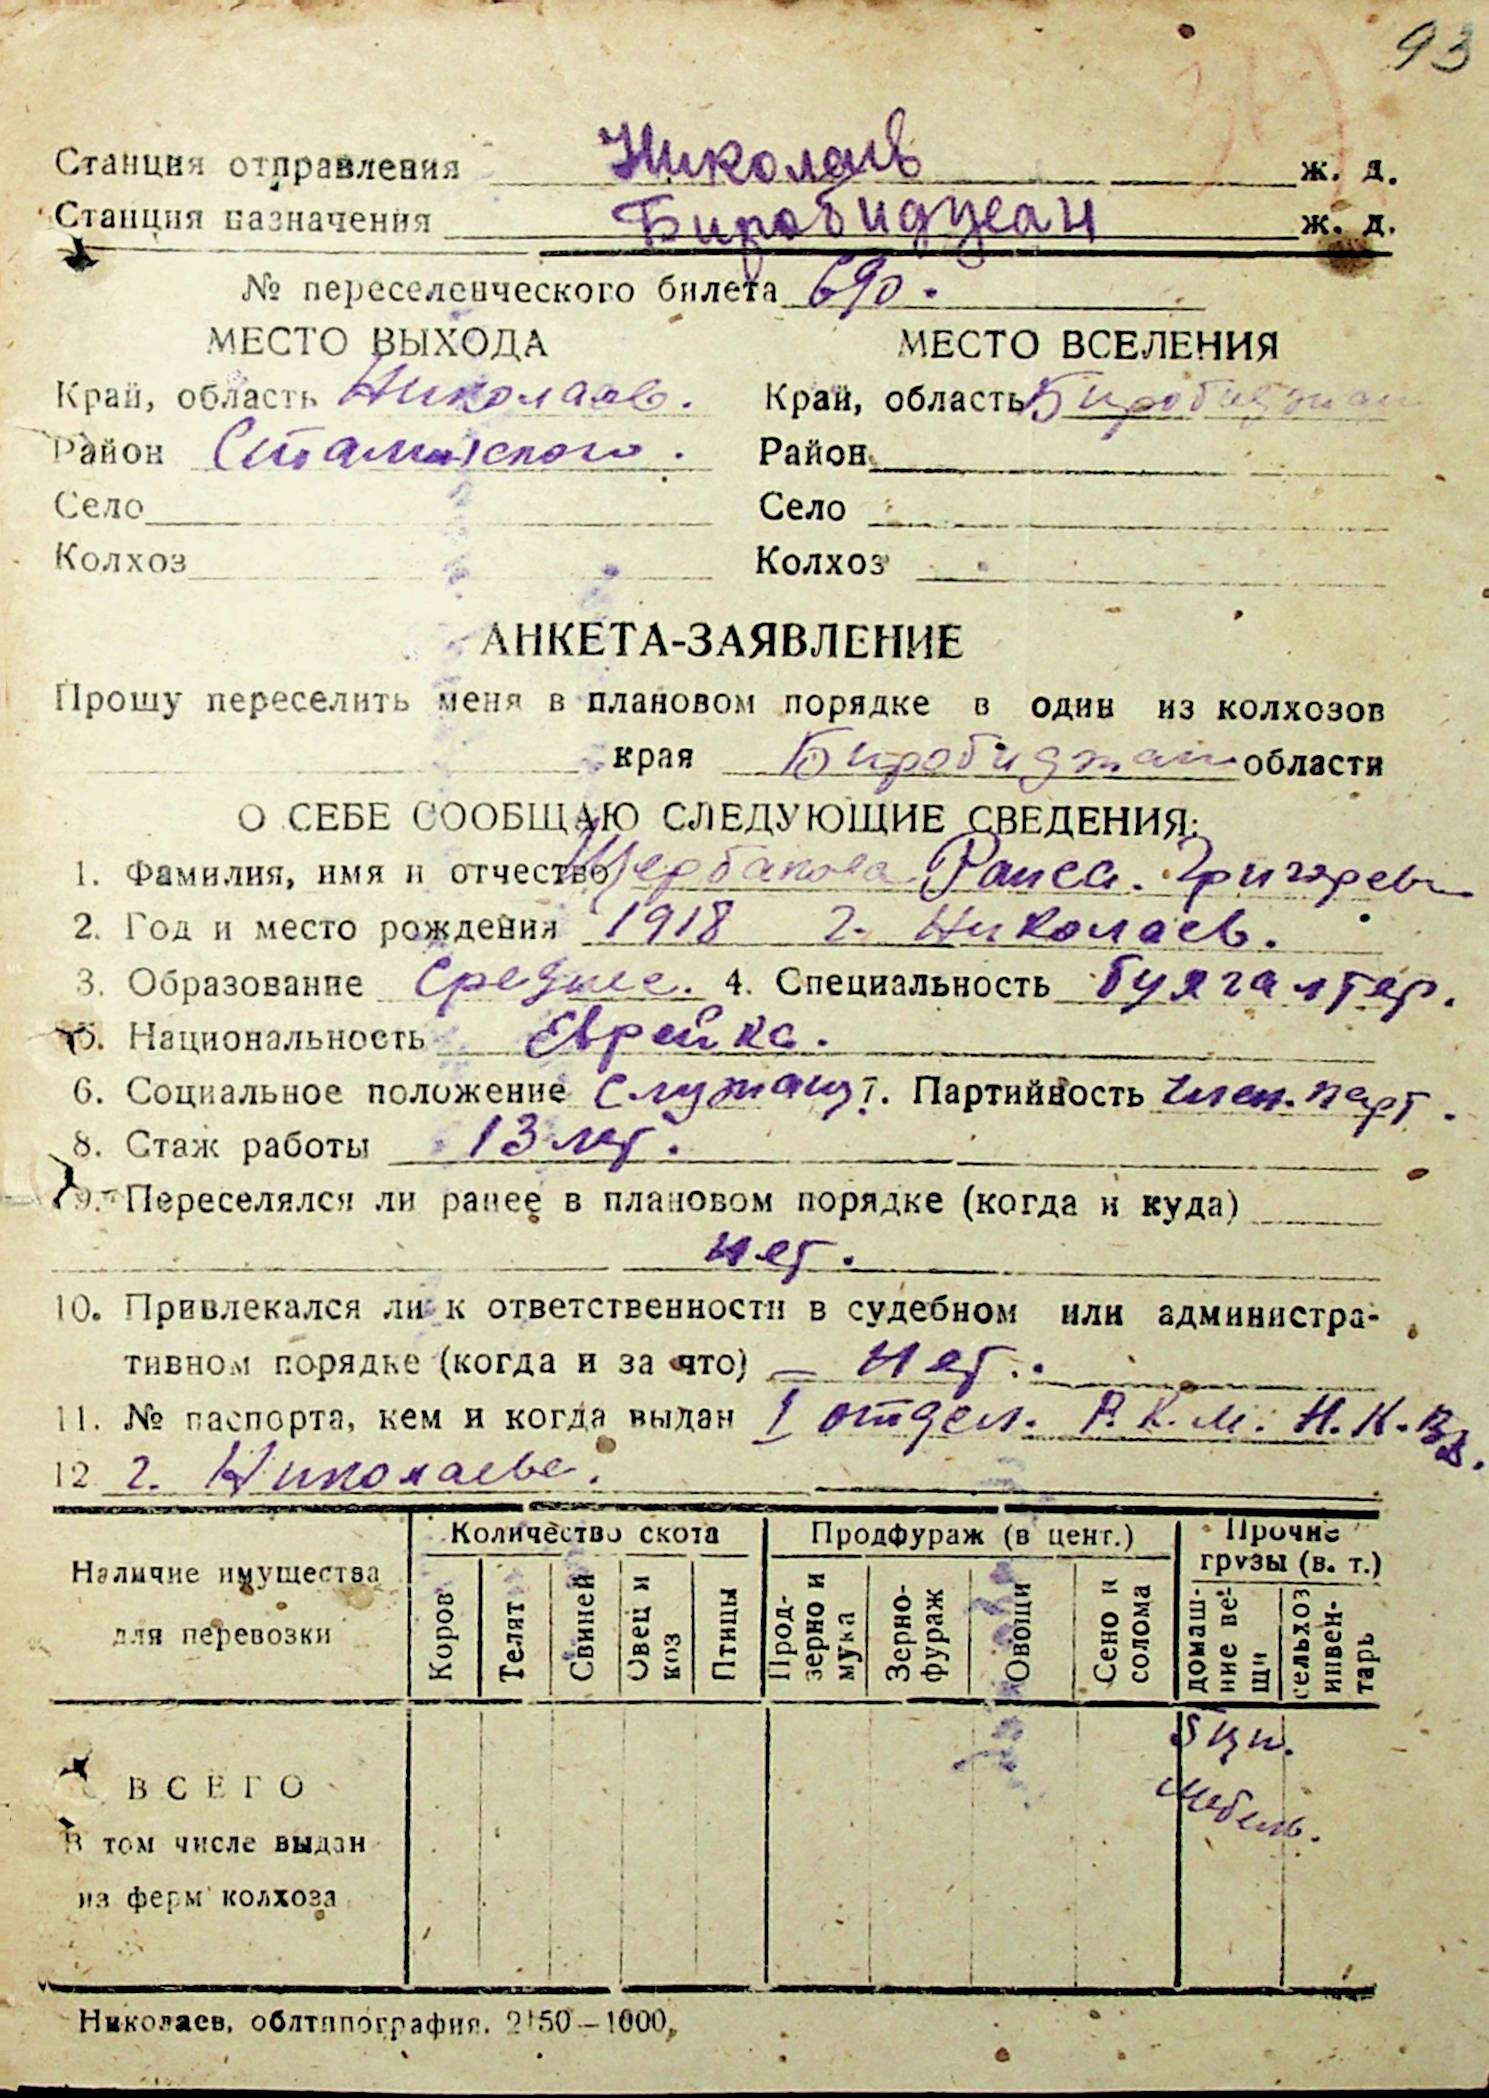 93
Станция отправления Николаев ж. д.
Станция назначения Биробиджан ж. д.
№ переселенческого билета 690.
МЕСТО ВЫХОДА МЕСТО ВСЕЛЕНИЯ
Край, область Николаев. Край, область Биробиджан
Район Сталинского. Район
Село Село
Колхоз Колхоз
АНКЕТА-ЗАЯВЛЕНИЕ
Прошу переселить меня в плановом порядке в один из колхозов
края Биробиджан области
О СЕБЕ СООБЩАЮ СЛЕДУЮЩИЕ СВЕДЕНИЯ:
1. Фамилия, имя и отчество Щербакова Раиса. Григорев
2. Год и место рождения 1918 г. Николаев.
3. Образование Среднее. 4. Специальность бухгалтер.
5. Национальность Еврейка.
6. Социальное положение Служащ 7. Партийность член. парт.
8. Стаж работы 13 лет.
9. Переселялся ли ранее в плановом порядке (когда и куда)
нет.
10. Привлекался ли к ответственности в судебном или администра-
тивном порядке (когда и за что) — нет.
11. № паспорта, кем и когда выдан I отдел. Р.К.М. Н.К.В.Д.
12 г. Николаеве.
Наличие имущества для перевозки Количество скота Продфураж (в цент.) Прочие грузы (в. т.)
Коров Телят Свиней Овец и коз Птицы Прод-зерно и мука Зерно-фураж Овощи Сено и солома домаш-ние ве-щи сельхоз инвен-тарь
5 цн.
мебель.
ВСЕГО
В том числе выдан
из ферм колхоза
Николаев, облтипография. 2150—1000,